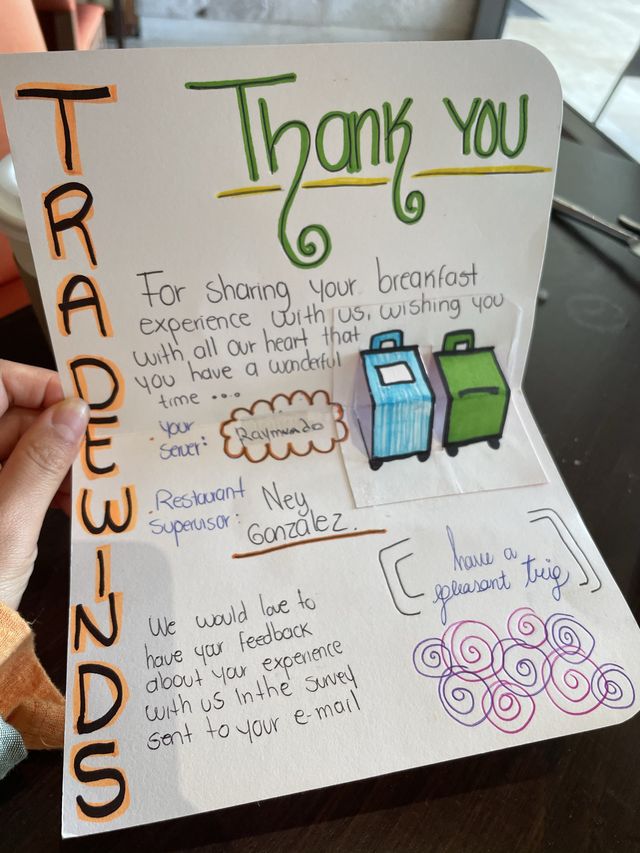 TRADEWINDS
Thank you
For sharing your breakfast
experience with us, wishing you
with all our heart that
you have a wonderful
time ....
. your
server:
Raymundo
. Restaurant
supervisor:
Ney
Gonzalez.
have a
pleasant trip
We would love to
have your feedback
about your experience
with us in the survey
sent to your e-mail